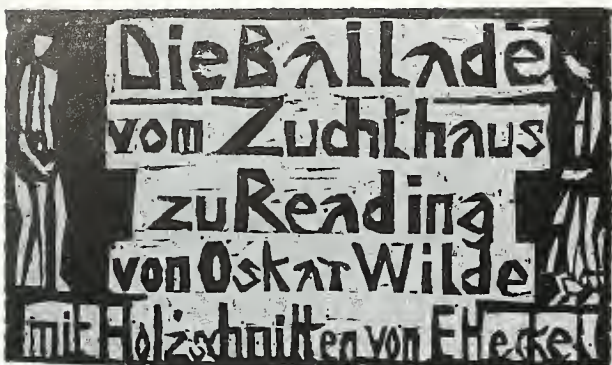 Die Ballade
vom Zuchthaus
zu Reading
von Oskar Wilde
mit Holzschnitten von E Heckel